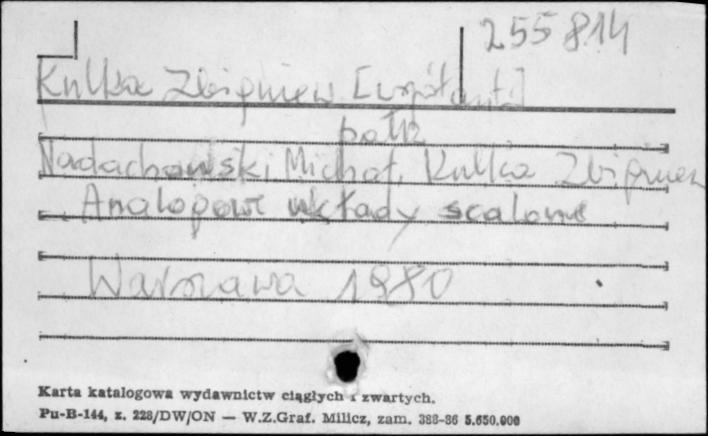 255814
Kulka Zbigniew [współaut.]
patrz
Nadachowski Michał, Kulka Zbigniew
Analogowe układy scalone
Warszawa 1980
Karta katalogowa wydawnictw ciągłych i zwartych.
Pu-B-144, z. 228/DW/ON — W.Z.Graf. Milicz, zam. 388-86 5.650.000